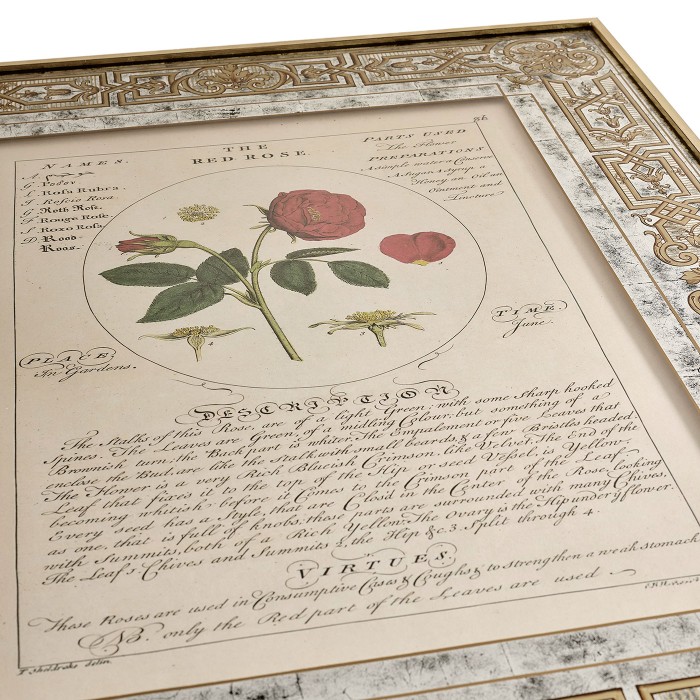 86
THE
RED ROSE.
NAMES.
A
G. Ροδον
L. Rosa Rubra.
I. Roscio Rosa.
G. Roth Rose.
F. Rouge Rose.
S. Roxo Rosa.
D. Rood-
Roos.
PARTS USED
The Flower
PREPARATIONS
A simple water a Conserve
A Sugar a Syrup, a
Honey, an Oil an
Ointment and
Tincture.
1
2
3
4
PLACE.
In Gardens.
TIME.
June.
DESCRIPTION
The Stalks of this Rose, are of a light Green; with some Sharp hooked
Spines. The Leaves are Green, of a midling Colour; but something of a
Brownish turn, the Back part is whiter. The Empalement or five Leaves that
enclose the Bud, are like the Stalk, with small beards, & a few Bristles headed.
The Flower is a very Rich Blueish Crimson, like Velvet. The End of the
Leaf that fixes it to the top of the Hip or seed Vessel, is Yellow;
becoming whitish before it Comes to the Crimson part of the Leaf.
Every seed has a Style, that are Closed in the Center of the Rose, looking
as one, that is full of knobs; these parts are surrounded with many Chives,
with Summits, both of a Rich Yellow. The Ovary is the Hip under y.e flower.
The Leaf 1 Chives and Summits 2, the Hip &c. 3. Split through 4.
VIRTUES.
These Roses are used in Consumptive Cases & Coughs, & to strengthen a weak stomach
NB. only the Red part of the Leaves are used
T. Sheldrake delin.